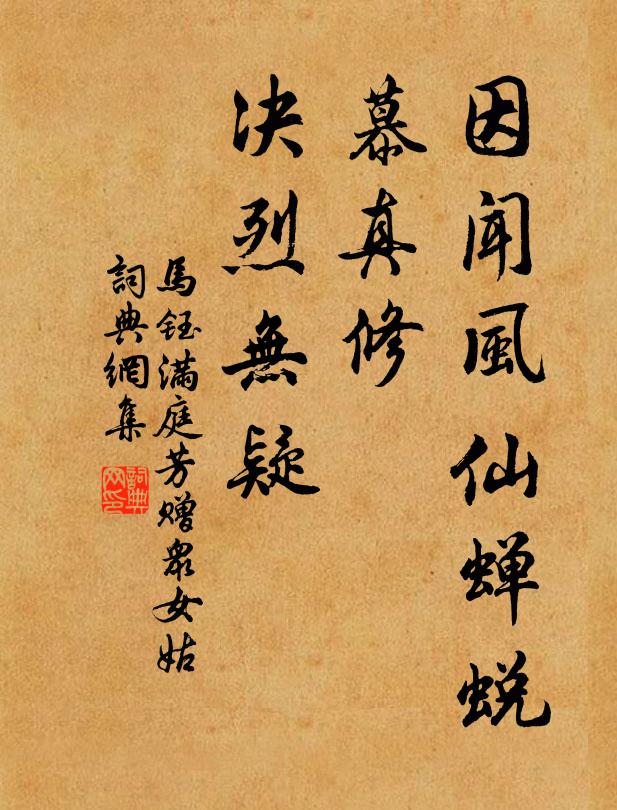 因闻風仙蝉蜕
慕真修
决烈無疑
馬鈺滿庭芳赠眾女姑
詞典網集
詞典
网印